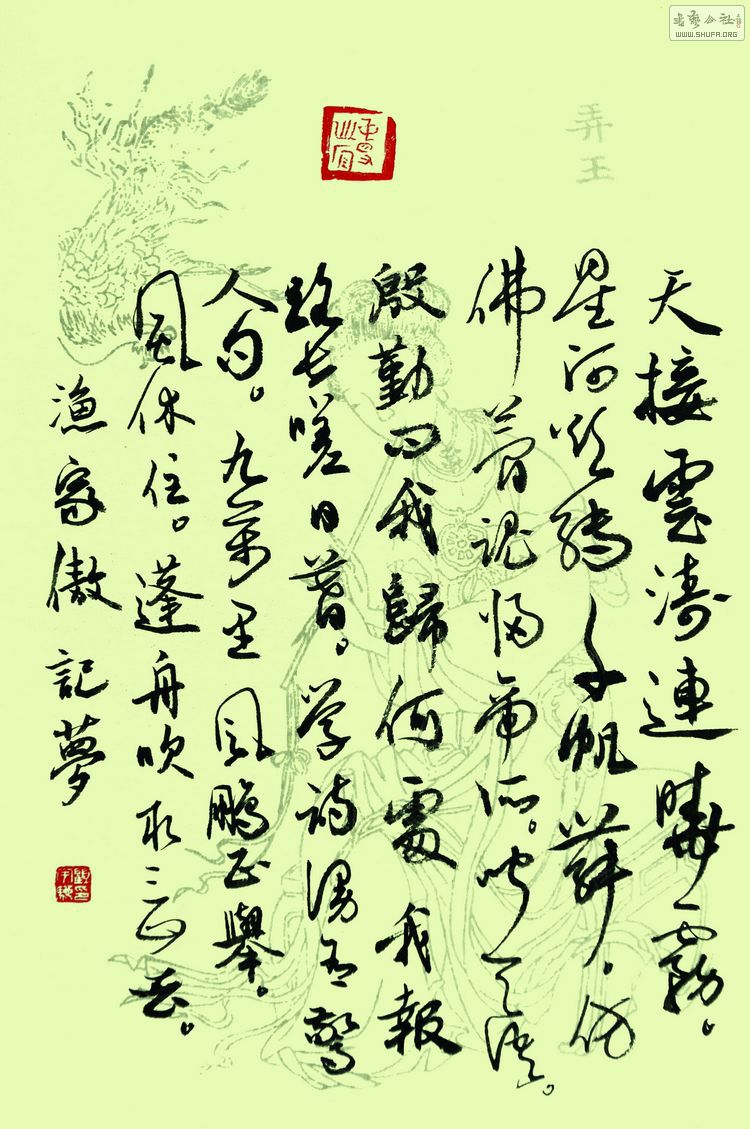 書藝公社
WWW.SHUFA.ORG
弄玉
天接雲濤連曉霧。
星河欲轉千帆舞。仿
佛夢魂歸帝所。聞天語。
殷勤問我歸何處我報
路長嗟日暮。学詩漫有驚
人句。九萬里風鵬正舉。
風休住。蓬舟吹取三山去。
漁家傲 記夢